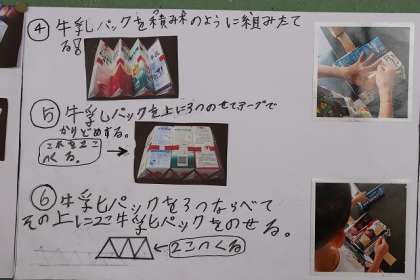 ④ 牛乳パックを積み木のように組みたて
る。
⑤ 牛乳パックを上に3つのせてテープで
かりどめする。
これを2こ
つくる。
⑥ 牛乳パックを3つならべて
その上に2こ牛乳パックをのせる。
2こつくる